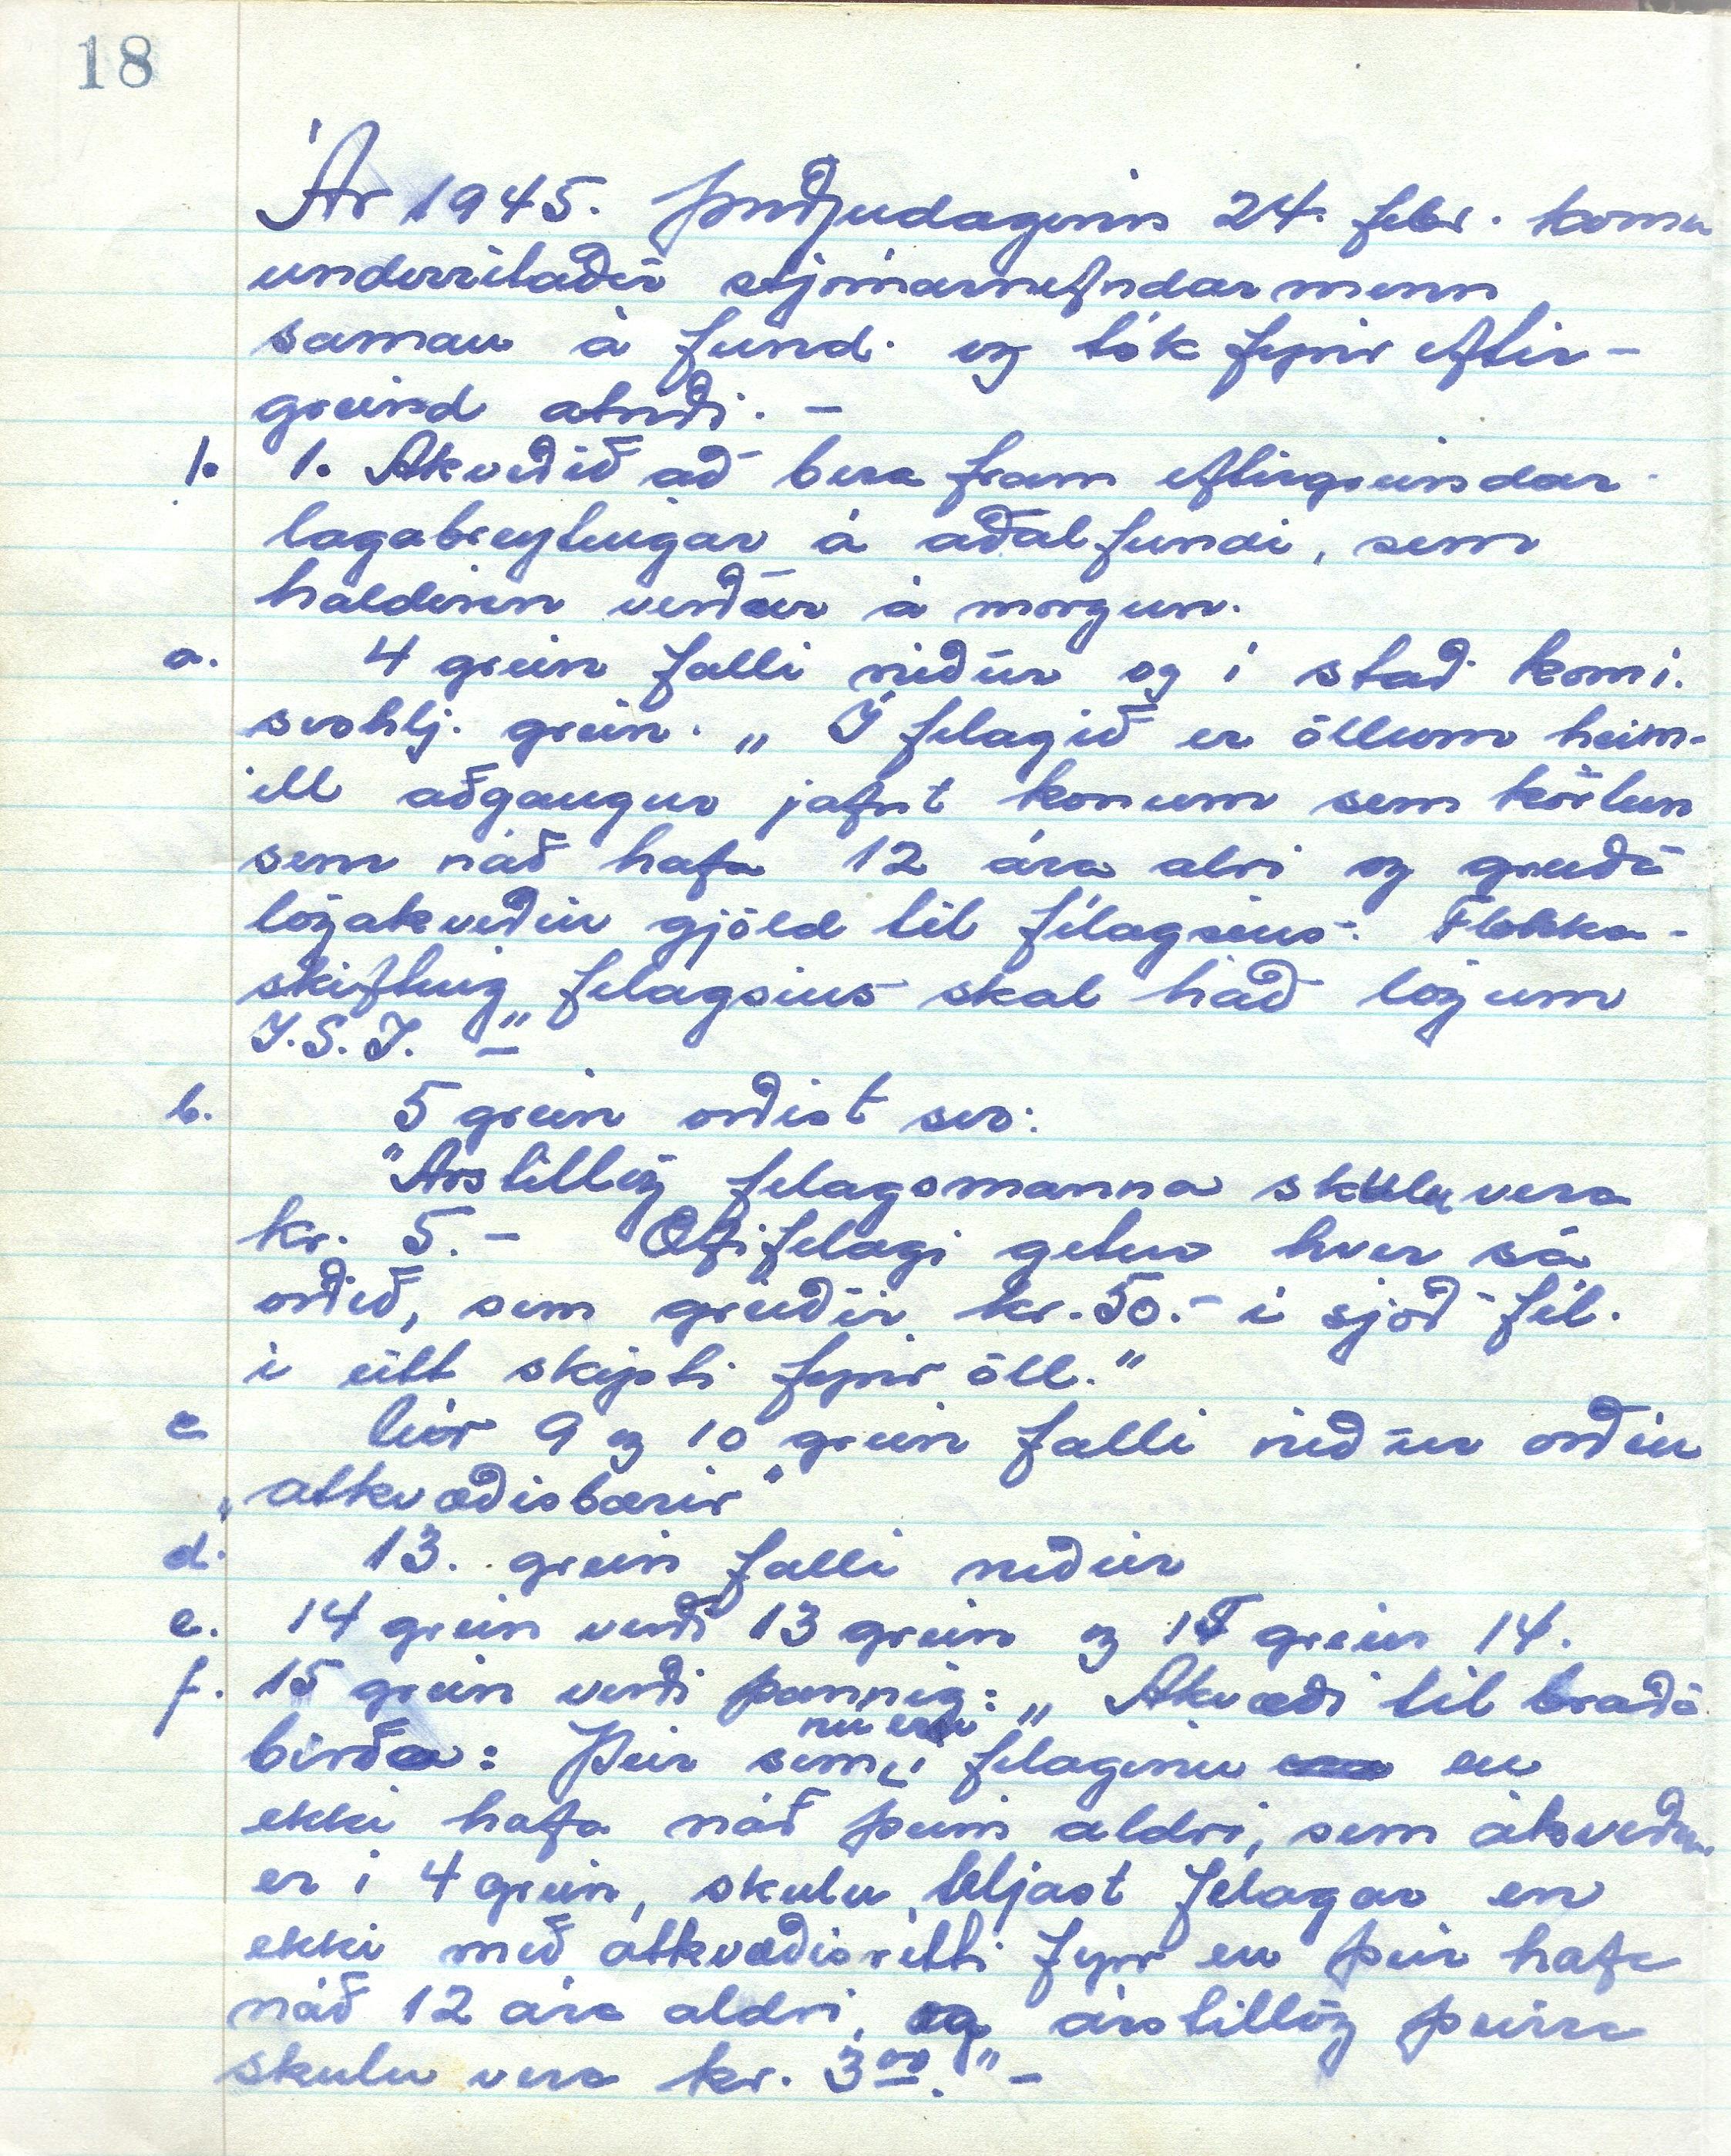 18
Ár 1945. þriðjudaginn 24. febr. komu
undirritaðir stjórnarnefndarmenn
saman á fund. og tók fyrir eftir-
greind atriði. -
1. 1. Ákveðið að bera fram eftirgreindar
lagabreytingar á aðalfundi, sem
haldinn verður á morgun.
a. 4 grein falli niður og í stað komi.
svohlj. grein. „ Í felagið er öllum heim-
ill aðgangur jafnt konum sem körlum
sem náð hafa 12 ára alri og greiða
lögákveðin gjöld til félagsins. Flokka-
skifting felagsins skal háð lögum
Í.S.Í. "-
b. 5 grein orðist svo:
"Árstillög felagsmanna skulu vera
kr. 5.- Æfifelagi getur hver sá
orðið, sem greiðir kr. 50.- í sjóð fél.
í eitt skipti fyrir öll."
c Úr 9 og 10 grein falli niður orðin
„atkvæðisbærir"
d. 13. grein falli niður
e. 14 grein verði 13 grein og 15 grein 14.
f. 15 grein verði þannig: „ Ákvæði til bráða
birða: Þeir sem nú eru í felaginu en
ekki hafa náð þeim aldri, sem ákveðin
er í 4 grein, skulu teljast félagar en
ekki með atkvæðisrétti fyrr en þeir hafa
náð 12 ára aldri, og árstillög þeirra
skulu vera kr. 3.00."-